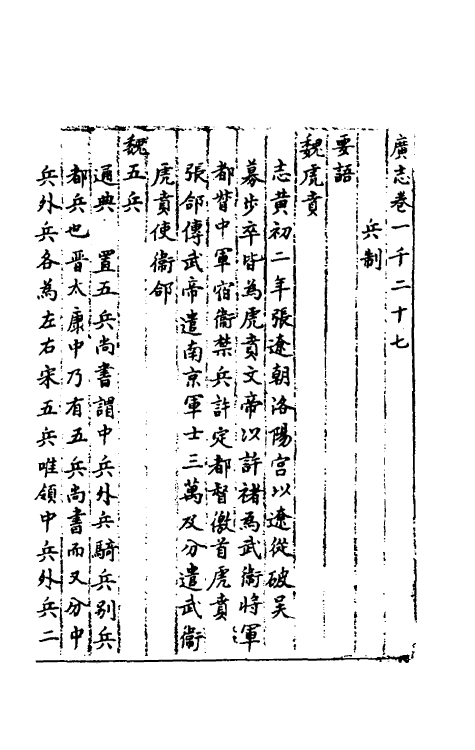 廣志卷一千二十七
兵制
要語
魏虎賁
志黃初二年張遼朝洛陽宮以遼從破吴
募步卒皆為虎賁文帝以許褚為武衞將軍
都督中軍宿衞禁兵許定都督徼首虎賁
張郃傳武帝遣南京軍士三萬及分遣武衞
虎賁使衞郃
魏五兵
通典　置五兵尚書謂中兵外兵騎兵别兵
都兵也晋太康中乃有五兵尚書而又分中
兵外兵各為左右宋五兵唯領中兵外兵二